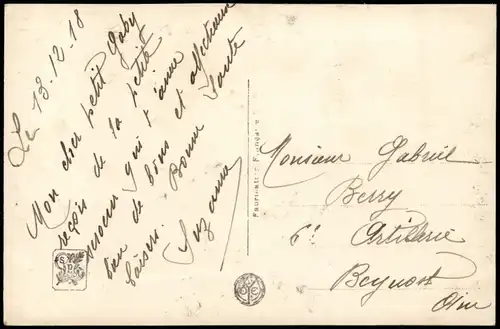 Le 13-12-18
Mon cher petit Gaby
reçois de la petite
personne qui t'aime
bien de bons et affectueux
baisers. Bonne Santé
Suzanne
Fabrication Française
Monsieur Gabriel
Berry
6e Artilerie
Beynost
Ain